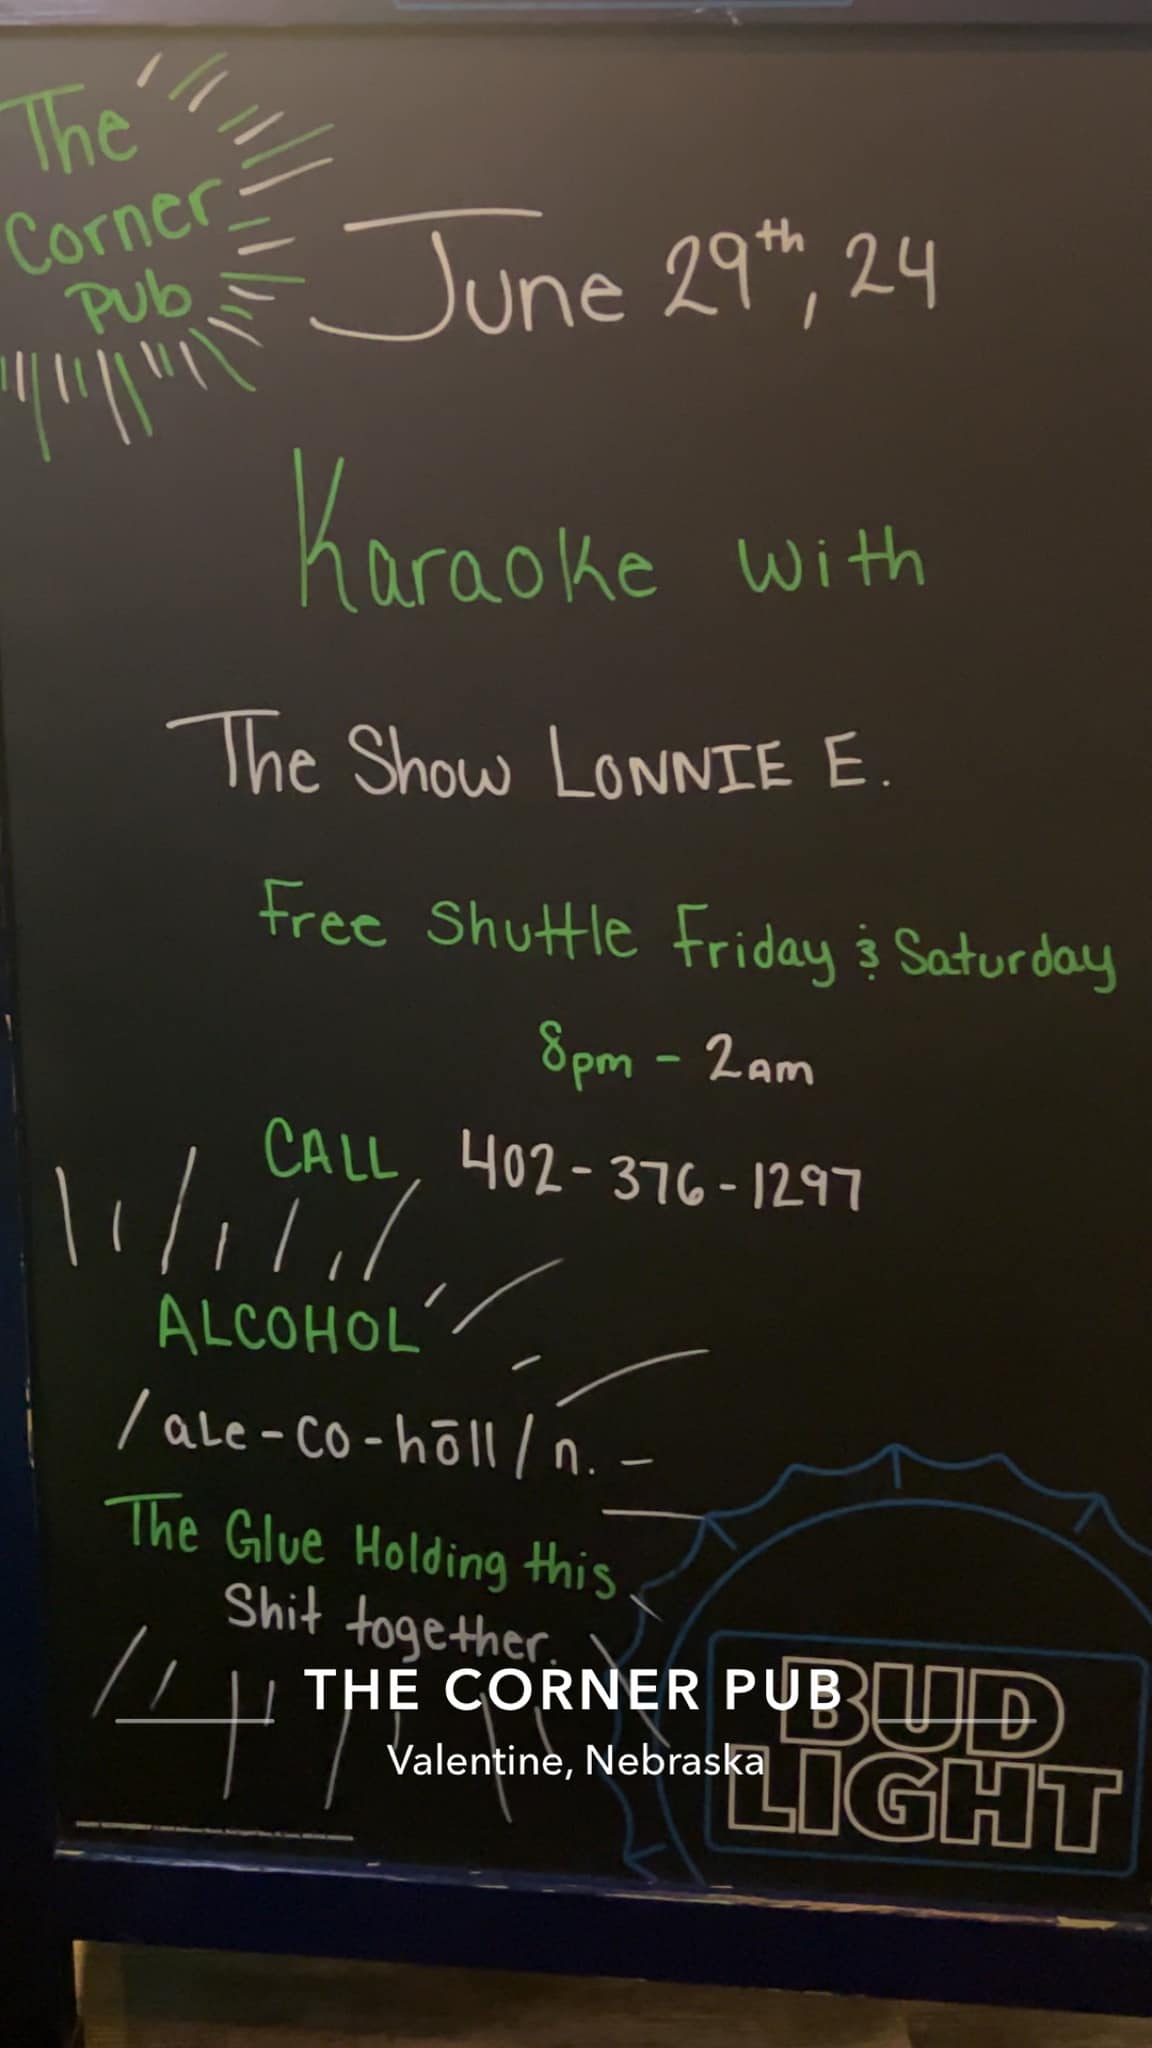 The
Corner
Pub
June 29th, 24
Karaoke with
The Show LONNIE E.
Free Shuttle Friday & Saturday
8pm - 2am
CALL 402-376-1297
ALCOHOL
/aLe-co-hōll/n. -
The Glue Holding this
Shit together.
THE CORNER PUB
Valentine, Nebraska
BUD
LIGHT